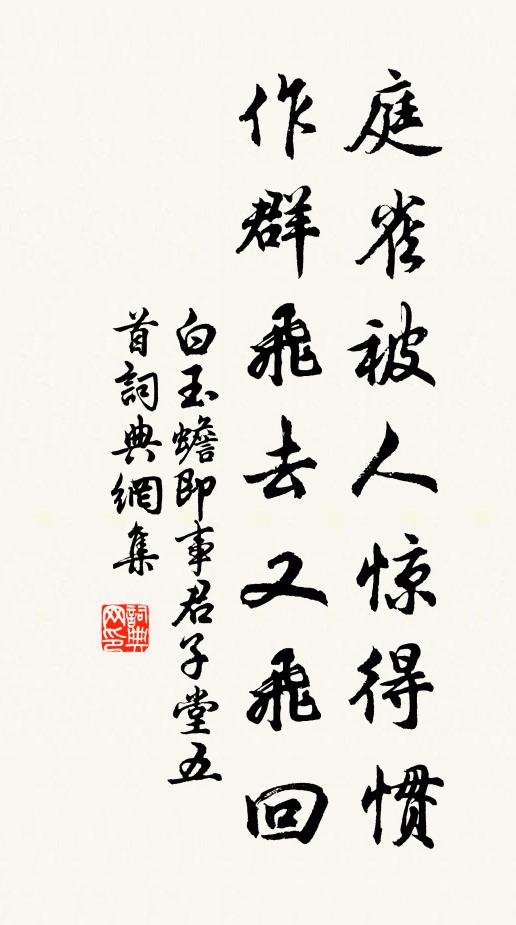 庭雀被人惊得惯
作群飛去又飛回
白玉蟾即事君子堂五
首詞典網集
詞典网印